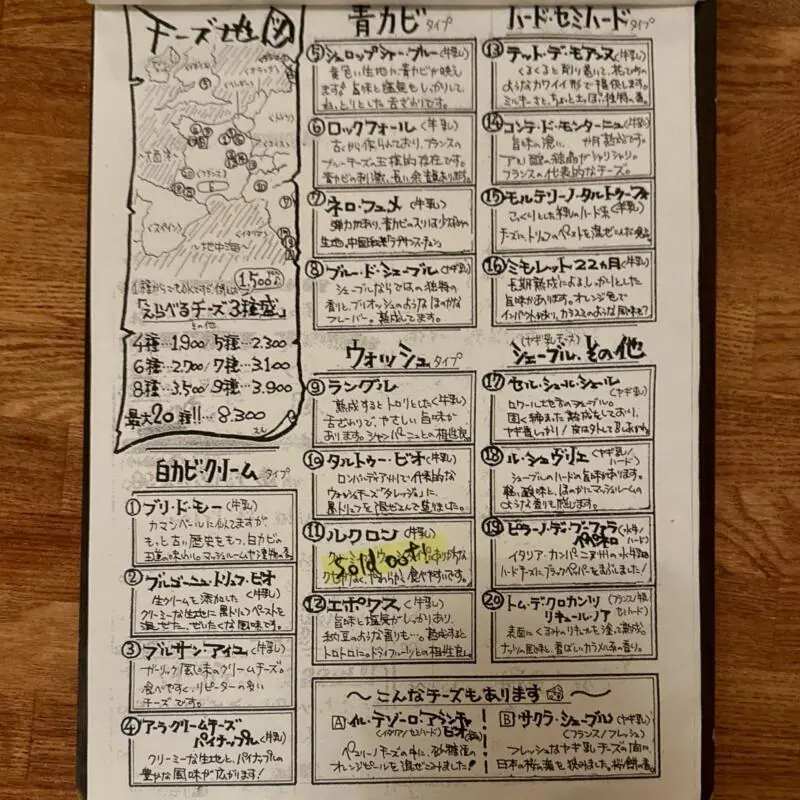 チーズ地図
〜地中海〜
(フランス)
(スペイン)
1,500
「えらべるチーズ3種盛」
その他
4種…1.900/5種…2.300
6種…2.700/7種…3.100
8種…3.500/9種…3.900
最大20種!!…8.300
白カビクリームタイプ
①ブリ・ド・モー(牛乳)
カマンベールに似てますが
もっと古い歴史をもつ、白カビの
②ブルゴーニュ・トリュフ・ビオ
生クリームを添加した(牛乳)
クリーミーな生地に黒トリュフペーストを
混ぜた、ぜいたくな風味です。
③ブルサン・アイユ(牛乳)
ガーリック風味のクリームチーズ。
食べやすく、リピーターの多い
チーズです。
④アーラクリームチーズ
パイナップル(牛乳)
クリーミーな生地と、パイナップルの
豊かな風味が広がります!
青カビタイプ
⑤シュロップシャー・ブルー(牛乳)
黄色い生地に青カビが映え
ます。旨味と塩気もしっかりして
ねっとりとした舌ざわりです。
⑥ロックフォール(牛乳)
古くから作られており、フランスの
ブルーチーズの王様的存在です。
青カビの刺激、長い余韻あります。
⑦ネロ・フュメ(牛乳)
弾力があり、青カビの入りは少なめの
⑧ブルー・ド・シェーブル(ヤギ乳)
シェーブルならではの独特の
香りと、ブリオッシュのようなほのかな
フレーバー。熟成してます。
ウォッシュタイプ
⑨ラングル(牛乳)
熟成するとトロリとした
舌ざわりで、やさしい旨味が
あります。シャンパーニュとの相性良
⑩タルトゥー・ビオ(牛乳)
ロンバルディア州で代表的な
ウォッシュチーズ「タレッジョ」に、
黒トリュフを混ぜ込んで造りました。
⑪ルクロン(牛乳)
sold out!
クセがなく、やわらかく食べやすいです。
⑫エポワス(牛乳)
旨味と塩気がしっかりあり、
納豆のような香りも…。熟成すると
トロトロに。ドライフルーツとの相性良。
ハード・セミハードタイプ
⑬テット・デ・モアンヌ(牛乳)
くるくると削り着いて、花びらの
ようなカワイイ形で提供します。
⑭コンテ・ド・モンターニュ(牛乳)
旨味の濃い、 か月熟成です。
アミノ酸の結晶がシャリシャリ。
フランスの代表的なチーズ。
⑮モルテリーノ・タルトゥーフォ
(牛乳)
⑯ミモレット22ヵ月(牛乳)
長期熟成によるしっかりとした
旨味があります。オレンジ色で
インパクトあり、カラスミのような風味も?
(ヤギ乳チーズ)
シェーブル、その他
⑰セル・シュール・シェール
(ヤギ乳)
ロワール地方のシェーブル。
固く締まった熟成をしており、
⑱ル・シェヴリエ(ヤギ乳/ハード)
シェーブルのハードの旨味があります。
軽い酸味と、ほのかにマッシュルームの
ような香りも感じます。
⑲ピラーノ・デ・ブーファラ
ペペネロ(水牛/ハード)
イタリア・カンパーニュ州の水牛乳
ハードチーズに、ブラックペーパーをまぶしました!
⑳トム・デ・クロカンツ
リキュール・ノア
表面にくるみのリキュールを塗って熟成。
ナッツの風味と、香ばしいカラメル系の香り。
〜こんなチーズもあります〜
A イル・テゾーロ・アランチャ
ビオ
ペコリーノチーズの中に、砂糖漬の
オレンジピールを混ぜこみました!
B サクラ・シェーブル(ヤギ乳)
(フランス/フレッシュ)
フレッシュなヤギ乳チーズの間に、